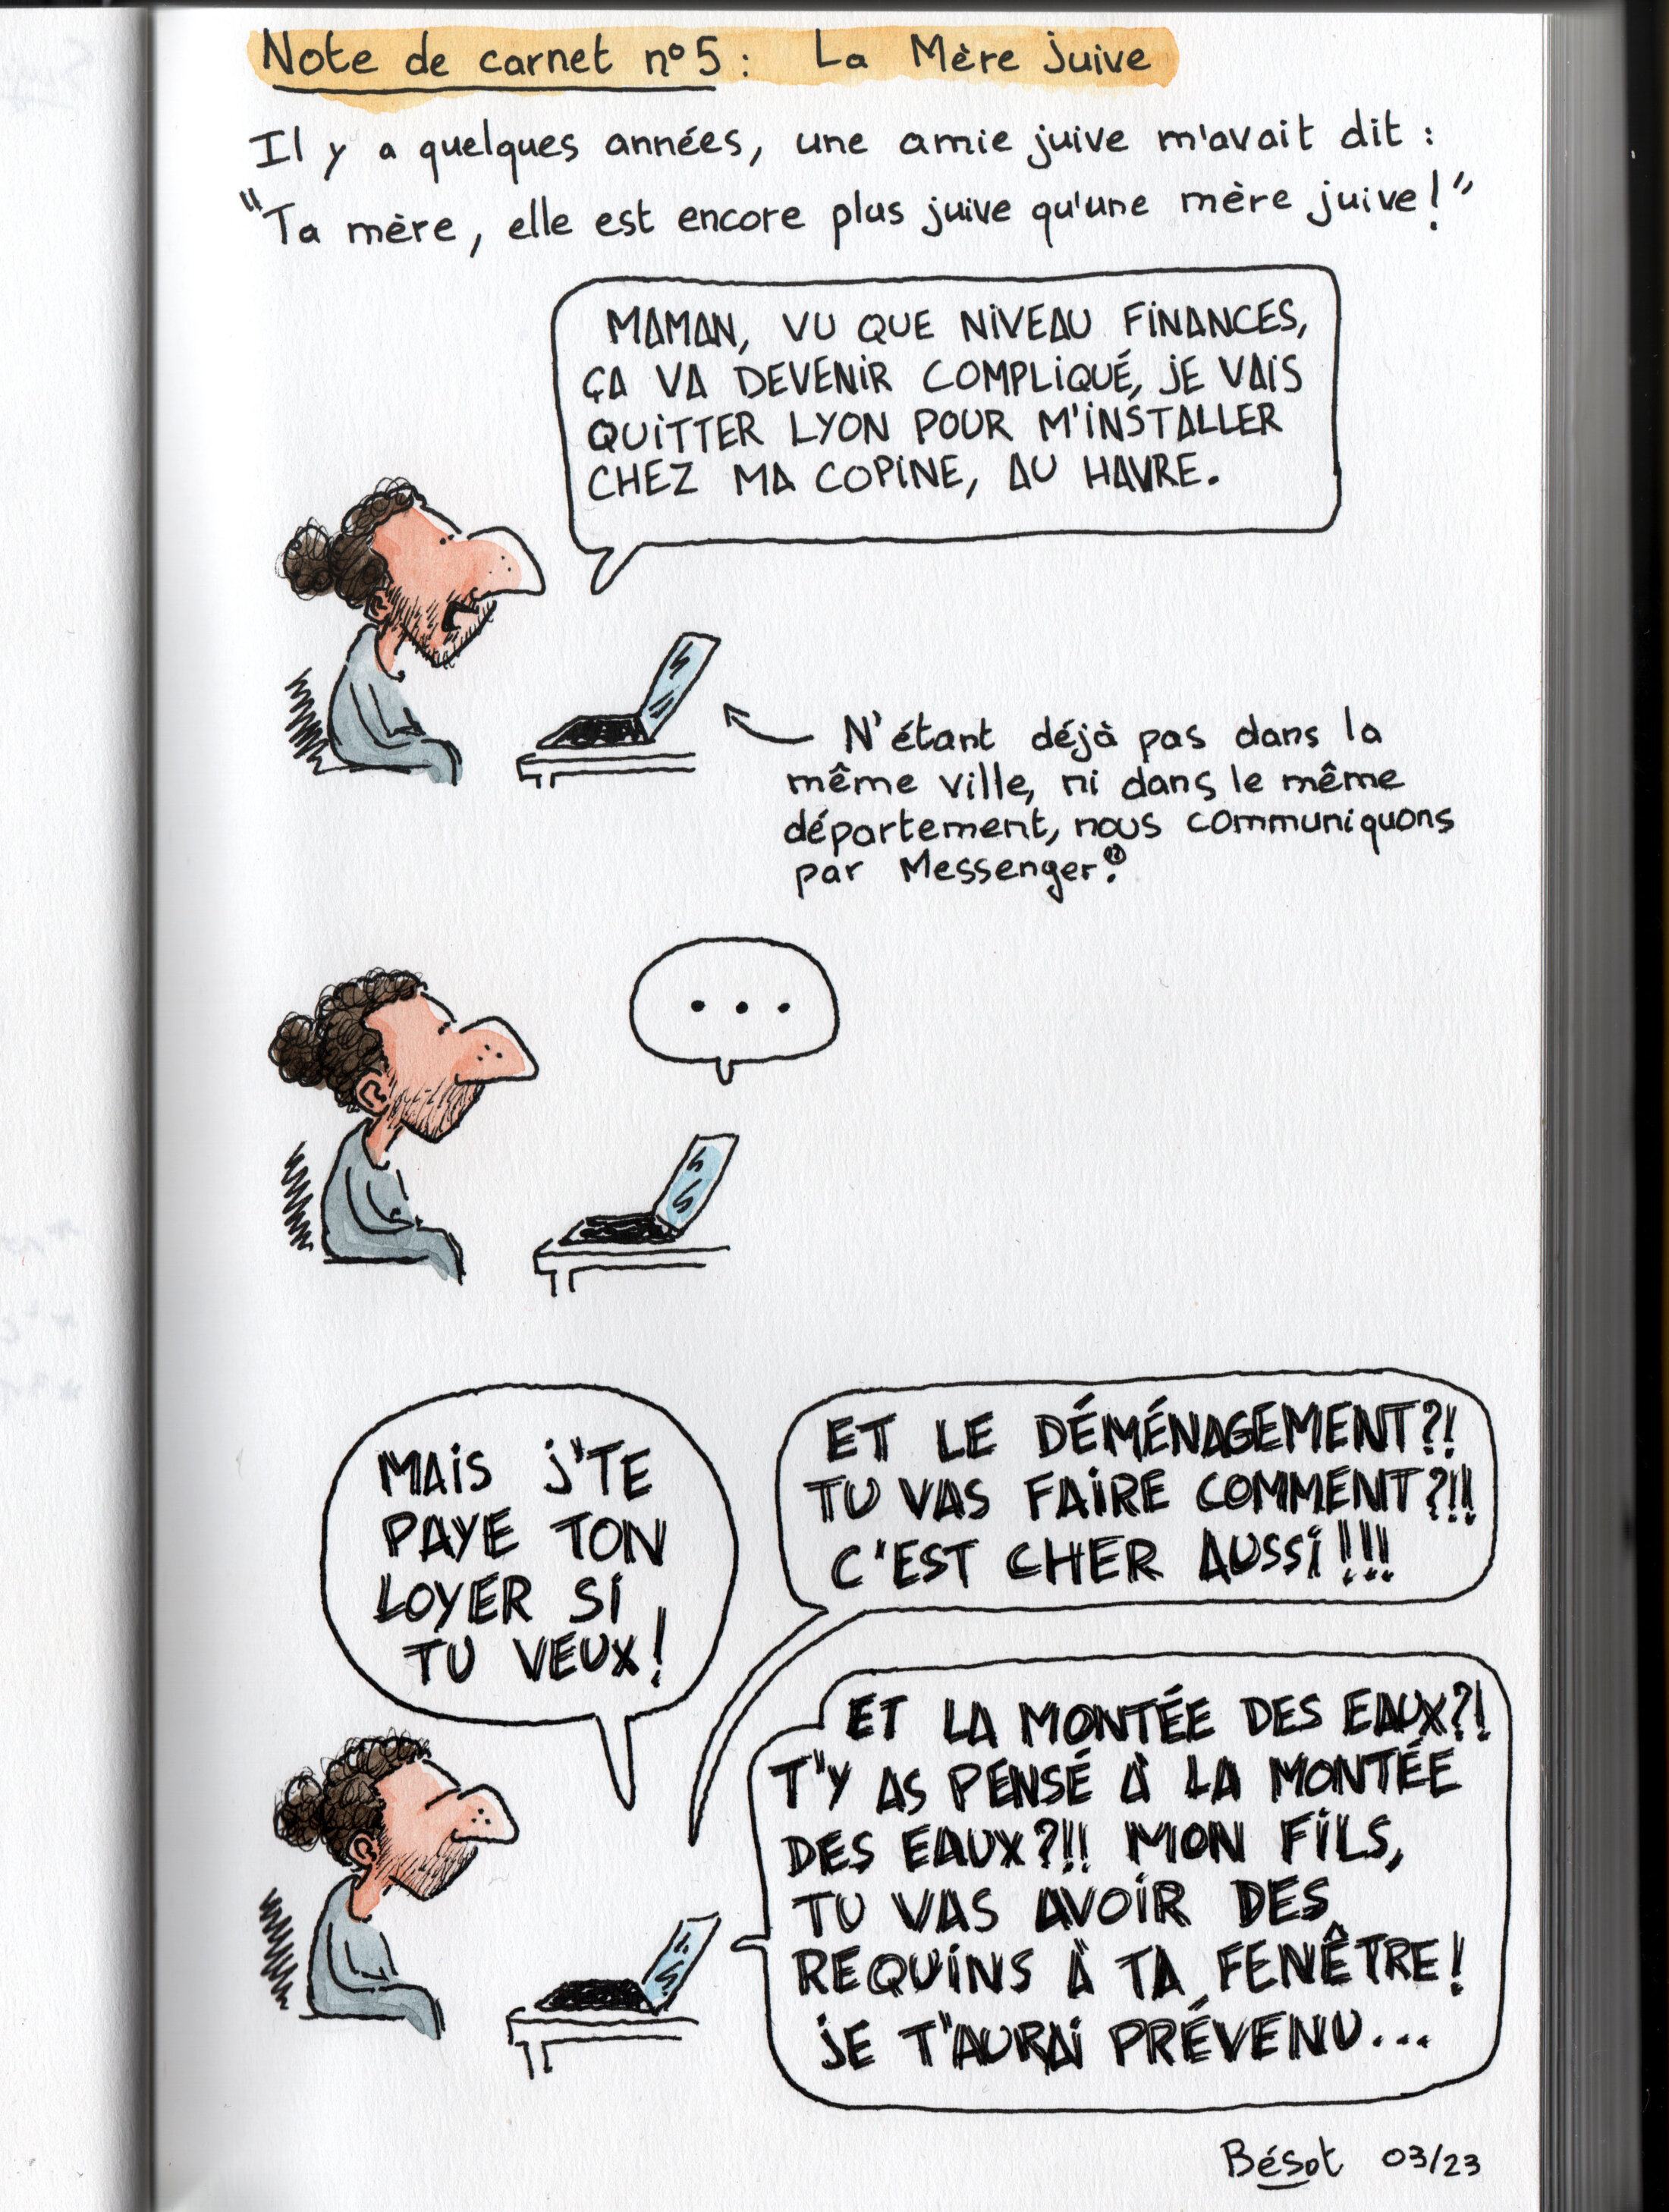 Note de carnet n°5 : La Mère juive
Il y a quelques années, une amie juive m'avait dit :
"Ta mère, elle est encore plus juive qu'une mère juive!"
MAMAN, VU QUE NIVEAU FINANCES,
ÇA VA DEVENIR COMPLIQUÉ, JE VAIS
QUITTER LYON POUR M'INSTALLER
CHEZ MA COPINE, AU HAVRE.
N'étant déjà pas dans la
même ville, ni dans le même
département, nous communiquons
par Messenger.
...
MAIS J'TE
PAYE TON
LOYER SI
TU VEUX!
ET LE DÉMÉNAGEMENT?!
TU VAS FAIRE COMMENT?!!
C'EST CHER AUSSI!!!
ET LA MONTÉE DES EAUX?!
T'Y AS PENSÉ À LA MONTÉE
DES EAUX?!! MON FILS,
TU VAS AVOIR DES
REQUINS À TA FENÊTRE!
JE T'AURAI PRÉVENU...
Bésot 03/23